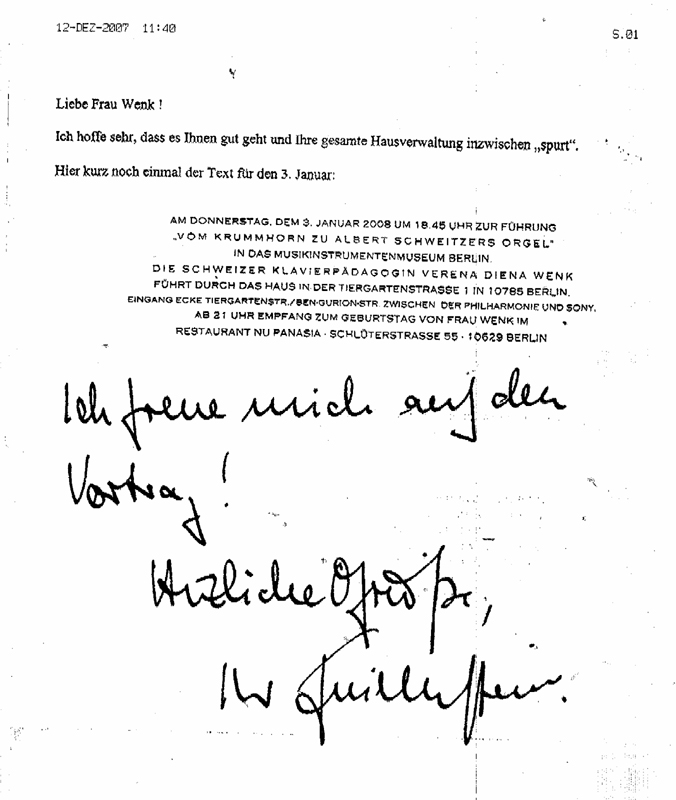 12-DEZ-2007 11:40
S.01
Liebe Frau Wenk !
Ich hoffe sehr, dass es Ihnen gut geht und Ihre gesamte Hausverwaltung inzwischen „spurt“.
Hier kurz noch einmal der Text für den 3. Januar:
AM DONNERSTAG, DEM 3. JANUAR 2008 UM 18.45 UHR ZUR FÜHRUNG
„VOM KRUMMHORN ZU ALBERT SCHWEITZERS ORGEL“
IN DAS MUSIKINSTRUMENTENMUSEUM BERLIN.
DIE SCHWEIZER KLAVIERPÄDAGOGIN VERENA DIENA WENK
FÜHRT DURCH DAS HAUS IN DER TIERGARTENSTRASSE 1 IN 10785 BERLIN,
EINGANG ECKE TIERGARTENSTR./BEN-GURION-STR. ZWISCHEN DER PHILHARMONIE UND SONY.
AB 21 UHR EMPFANG ZUM GEBURTSTAG VON FRAU WENK IM
RESTAURANT NU PANASIA · SCHLÜTERSTRASSE 55 · 10629 BERLIN
Ich freue mich auf den
Vortrag!
Herzliche Grüße,
Ihr